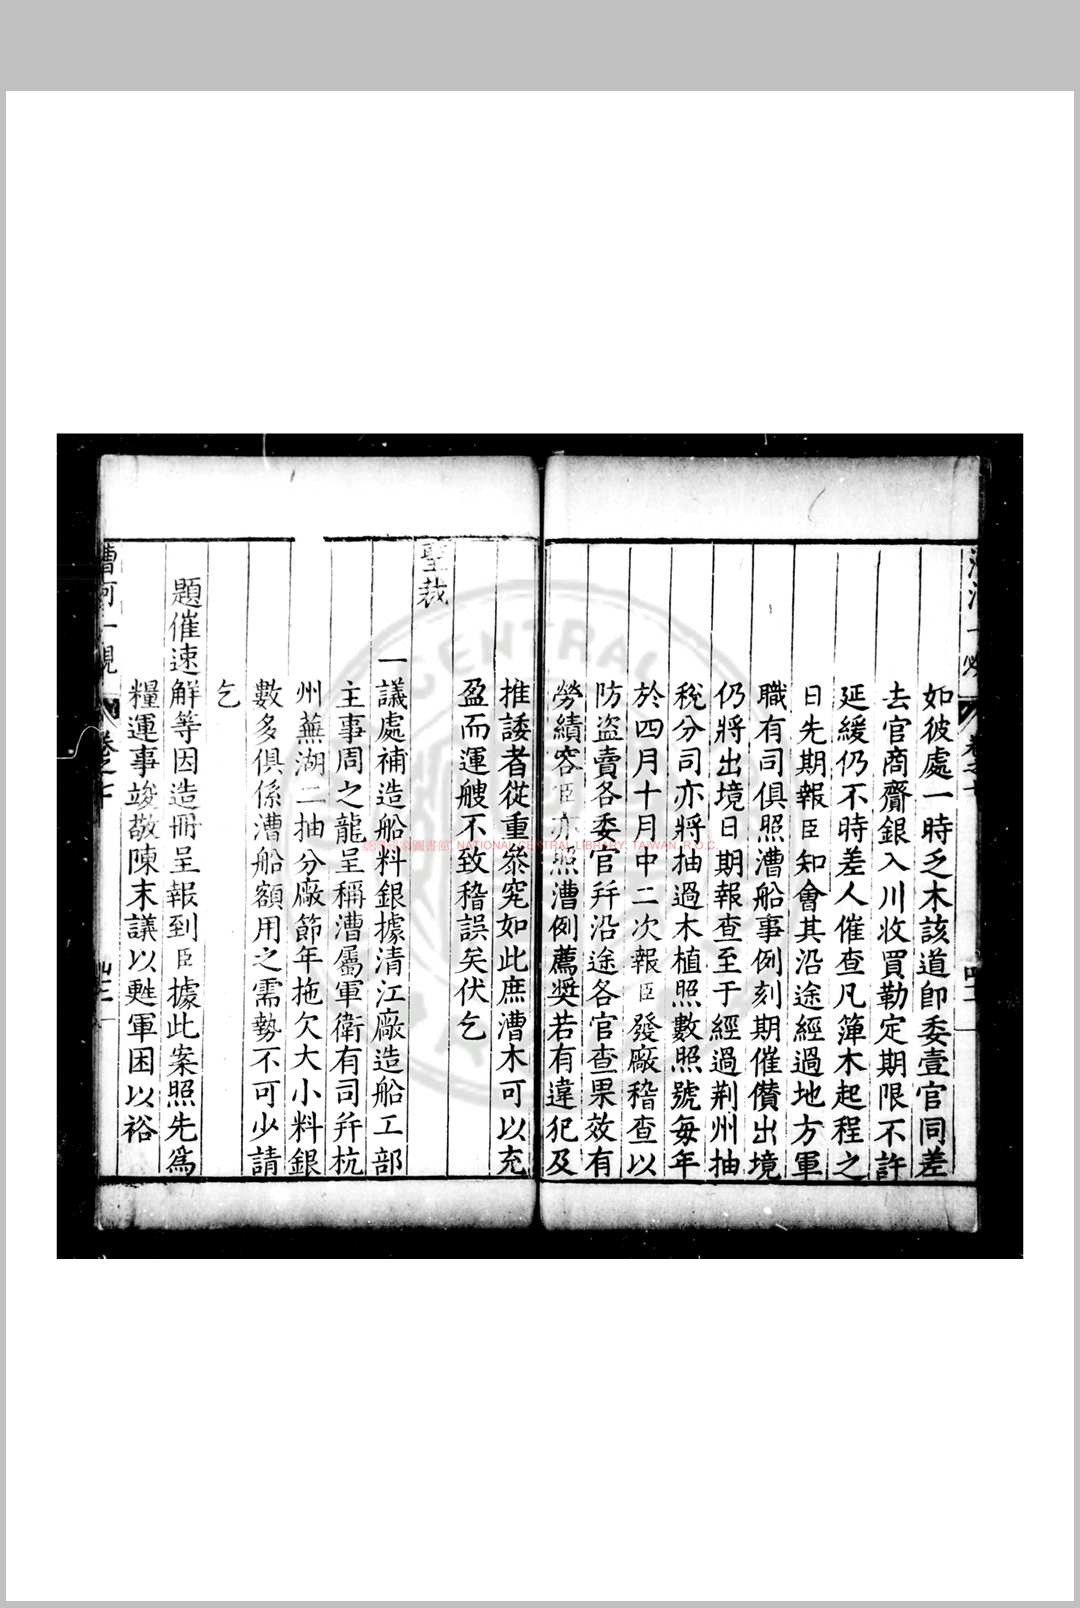 如彼處一時乏木該道卽委壹官同差
去官商齎銀入川收買勒定期限不許
延緩仍不時差人催查凡簰木起程之
日先期報臣知會其沿途經過地方軍
職有司俱照漕船事例刻期催儹出境
仍將出境日期報查至于經過荆州抽
稅分司亦將抽過木植照數照號每年
於四月十月中二次報臣發廠稽查以
防盜賣各委官幷沿途各官查果效有
勞績容臣亦照漕例薦奬若有違犯及
推諉者從重叅究如此庶漕木可以充
盈而運艘不致稽誤矣伏乞
聖裁
一議處補造船料銀據清江廠造船工部
主事周之龍呈稱漕屬軍衛有司幷杭
州蕪湖二抽分廠節年拖欠大小料銀
數多俱係漕船額用之需勢不可少請
乞
題催速解等因造冊呈報到臣據此案照先爲
糧運事竣敬陳末議以甦軍困以裕
漕河一覕 卷之七
NATIONAL CENTRAL LIBRARY, TAIWAN, R.O.C.